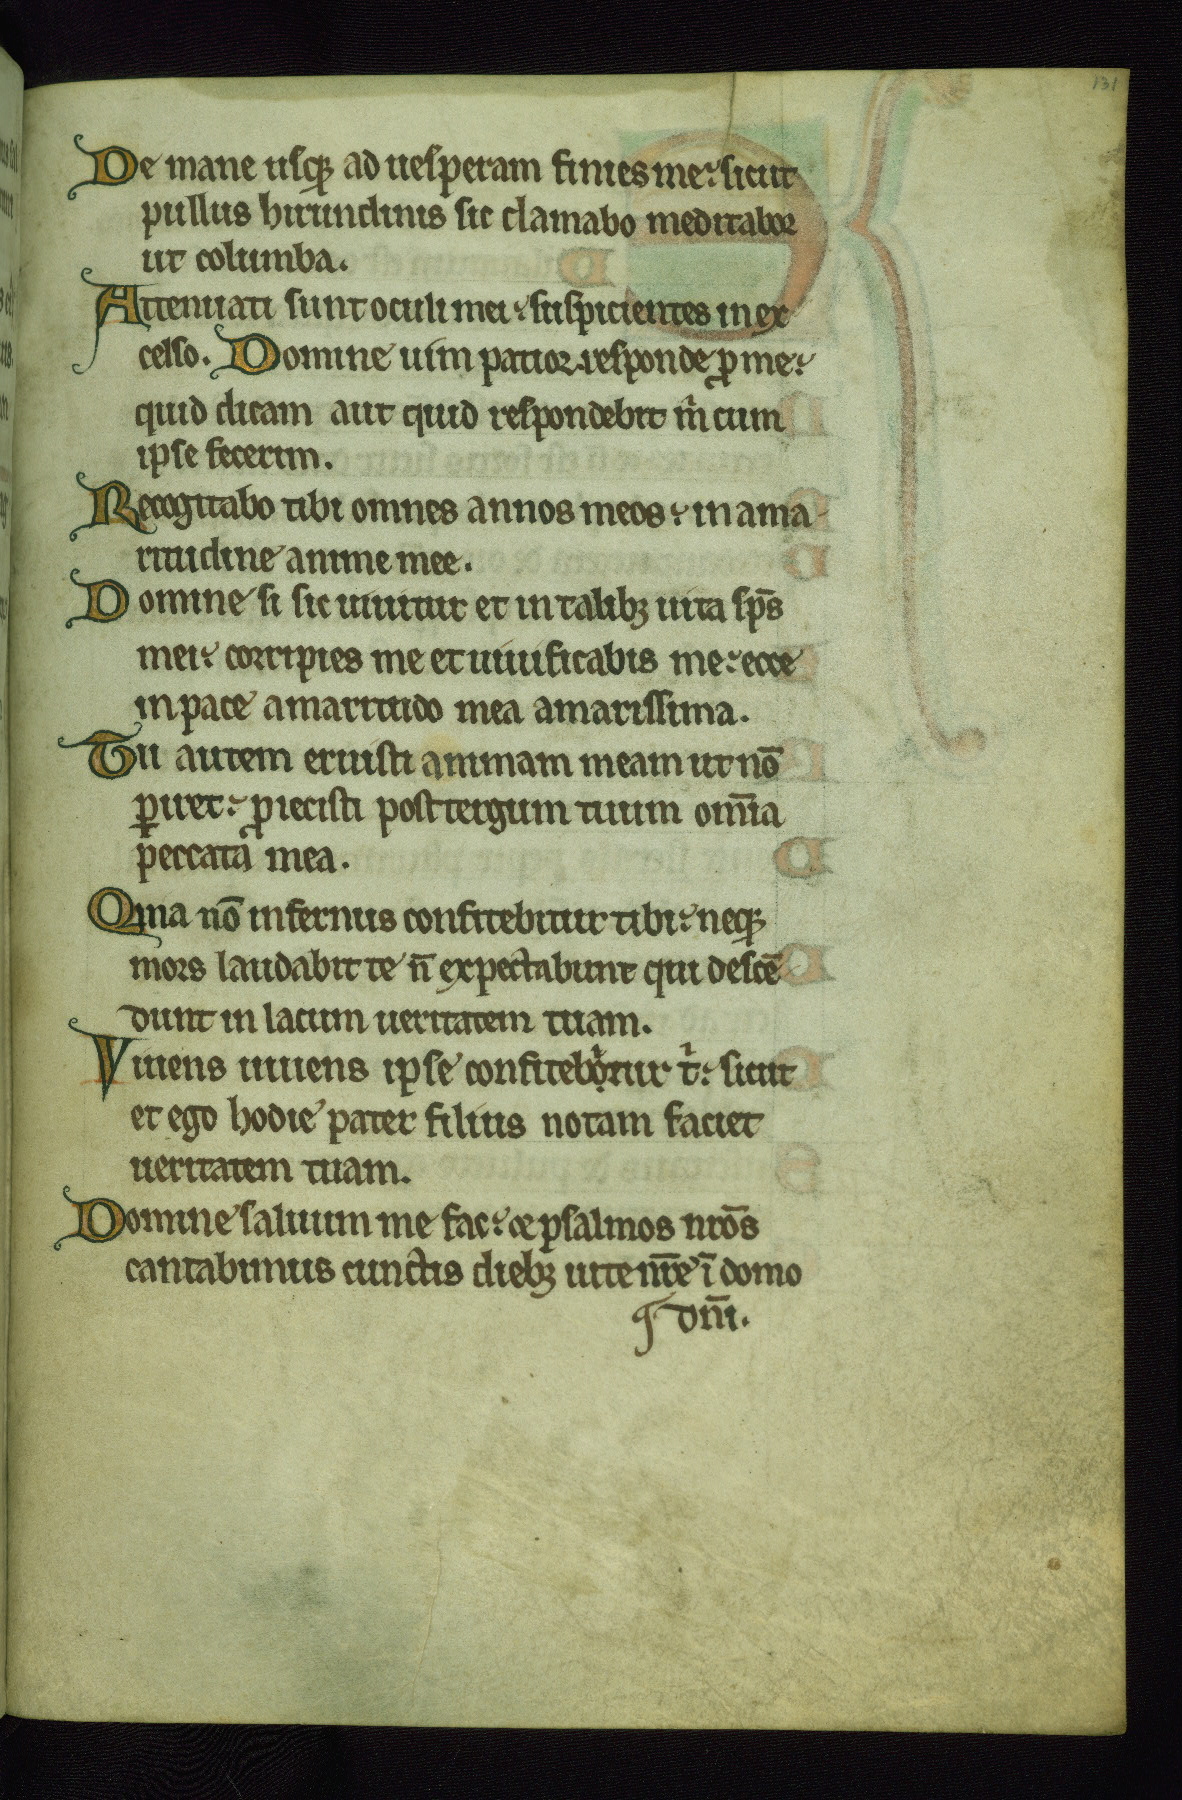 131
De mane usq; ad uesperam finies me: sicut
pullus hirundinis sic clamabo meditabor
ut columba.
Attenuati sunt oculi mei: suspicientes in ex
celso. Domine uim patior responde p me:
quid dicam aut quid respondebit m̄ cum
ipse fecerim.
Recogitabo tibi omnes annos meos: in ama
ritudine anime mee.
Domine si sic uiuitur et in talib; uita sp̄s
mei: corripies me et uiuificabis me: ecce
in pace amaritudo mea amarissima.
Tu autem eruisti animam meam ut nō
ꝑiret: ꝓiecisti post tergum tuum om̄ia
peccata mea.
Quia nō infernus confitebitur tibi: neq;
mors laudabit te n̄ expectabunt qui descē
dunt in lacum ueritatem tuam.
Viuens uiuens ipse confitebitur t̄: sicut
et ego hodie pater filius notam faciet
ueritatem tuam.
Domine saluum me fac: et psalmos nr̄os
cantabimus cunctis dieb; uite nr̄e ī domo
dn̄i.